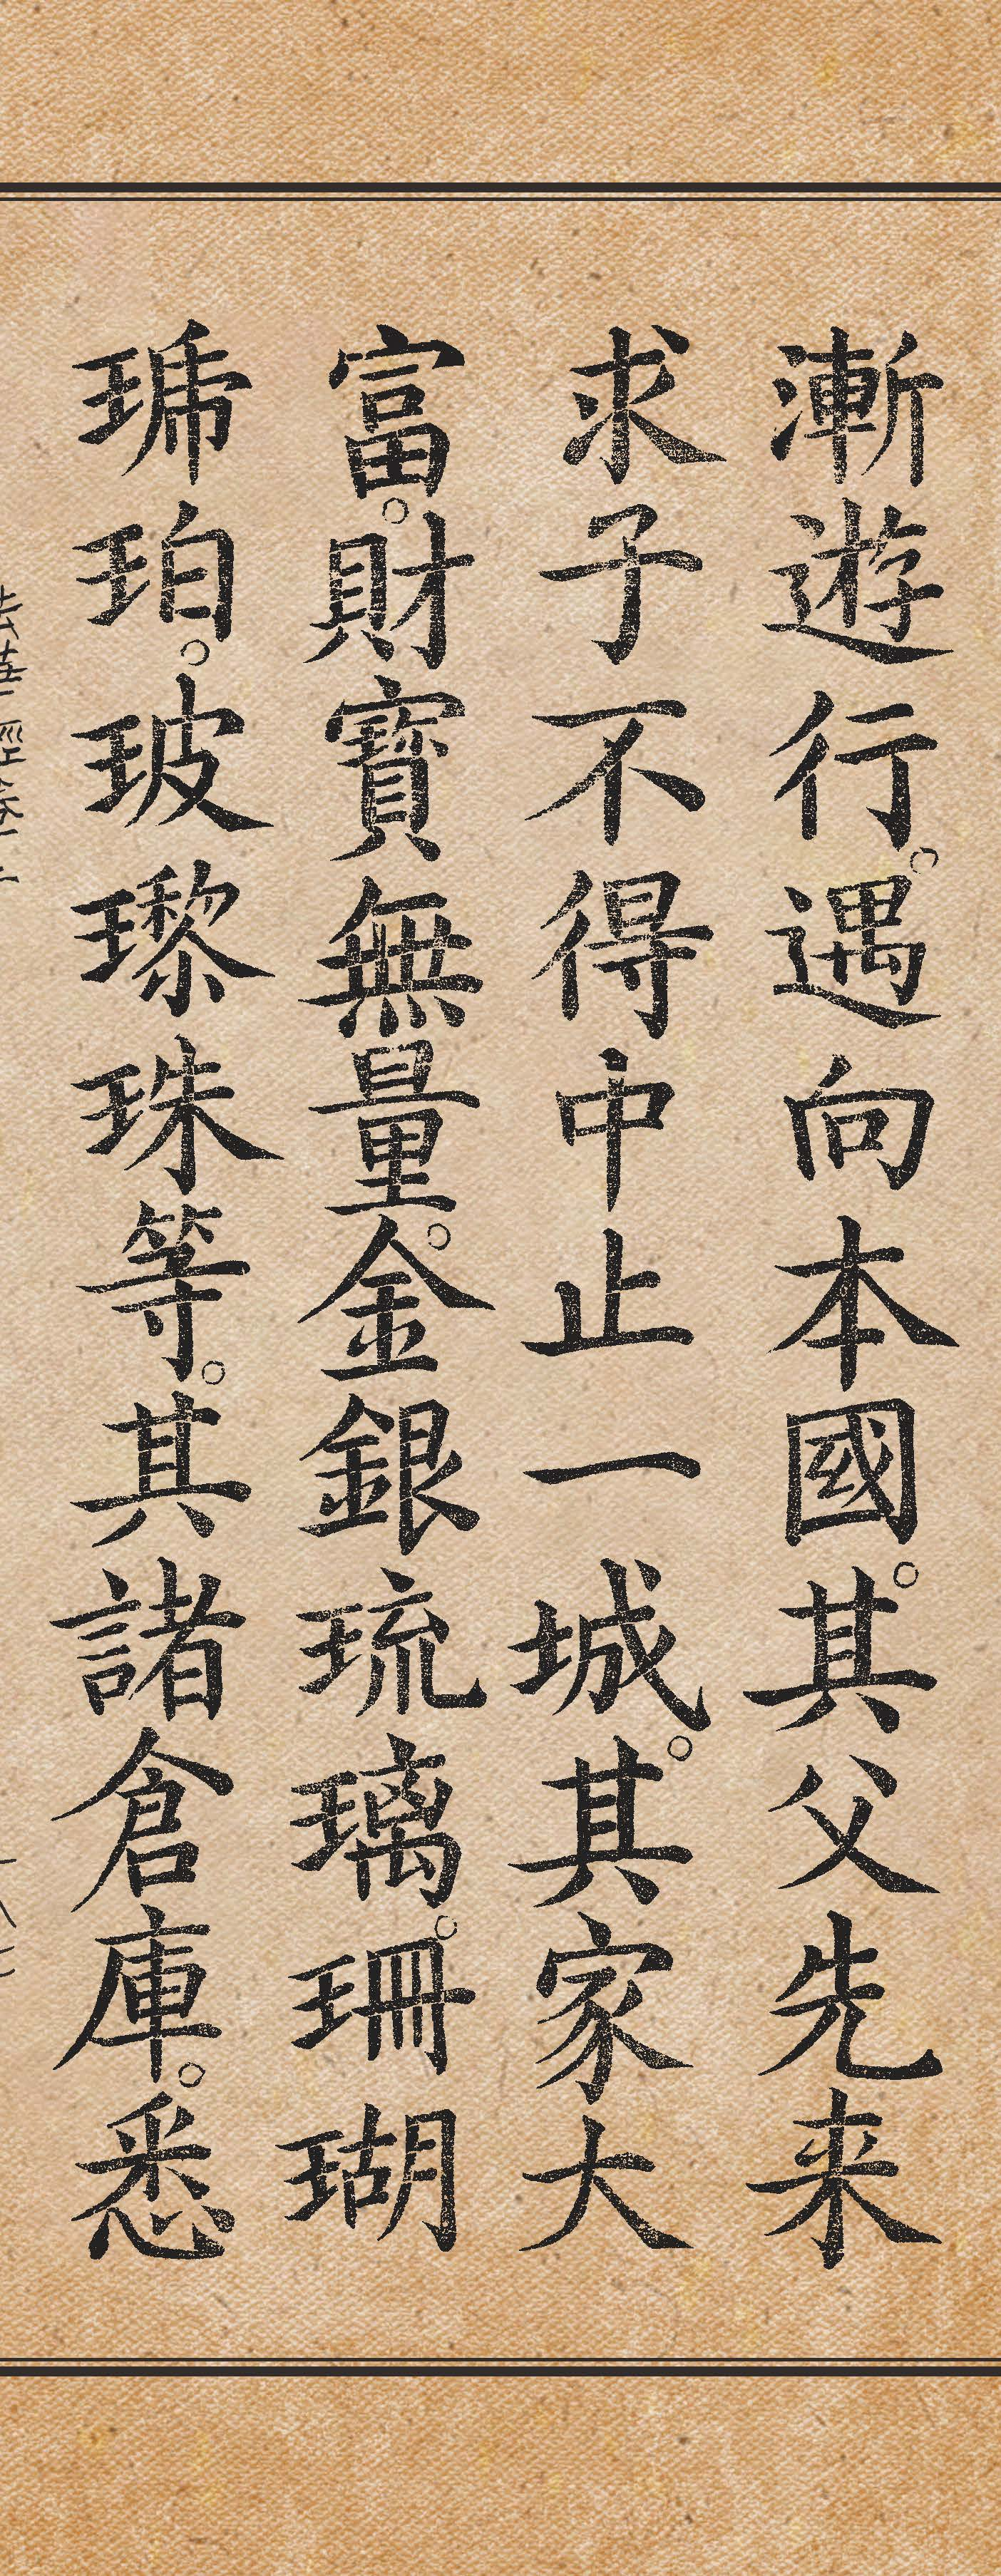 漸遊行。遇向本國。其父先来
求子不得中止一城。其家大
富。財寶無量。金銀琉璃。珊瑚
琥珀。玻瓈珠等。其諸倉庫。悉